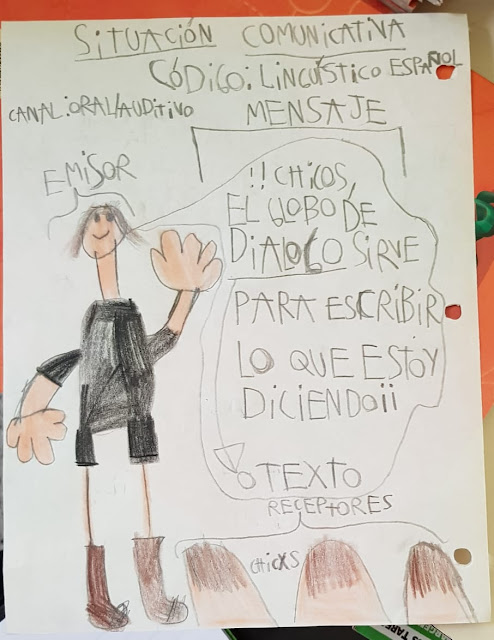 SITUACIÓN COMUNICATIVA
CÓDIGO: LINGUÍSTICO ESPAÑOL
CANAL: ORAL/AUDITIVO
MENSAJE
EMISOR
!! CHICOS,
EL GLOBO DE
DIALOGO SIRVE
PARA ESCRIBIR
LO QUE ESTOY
DICIENDO¡¡
TEXTO
RECEPTORES
CHICXS